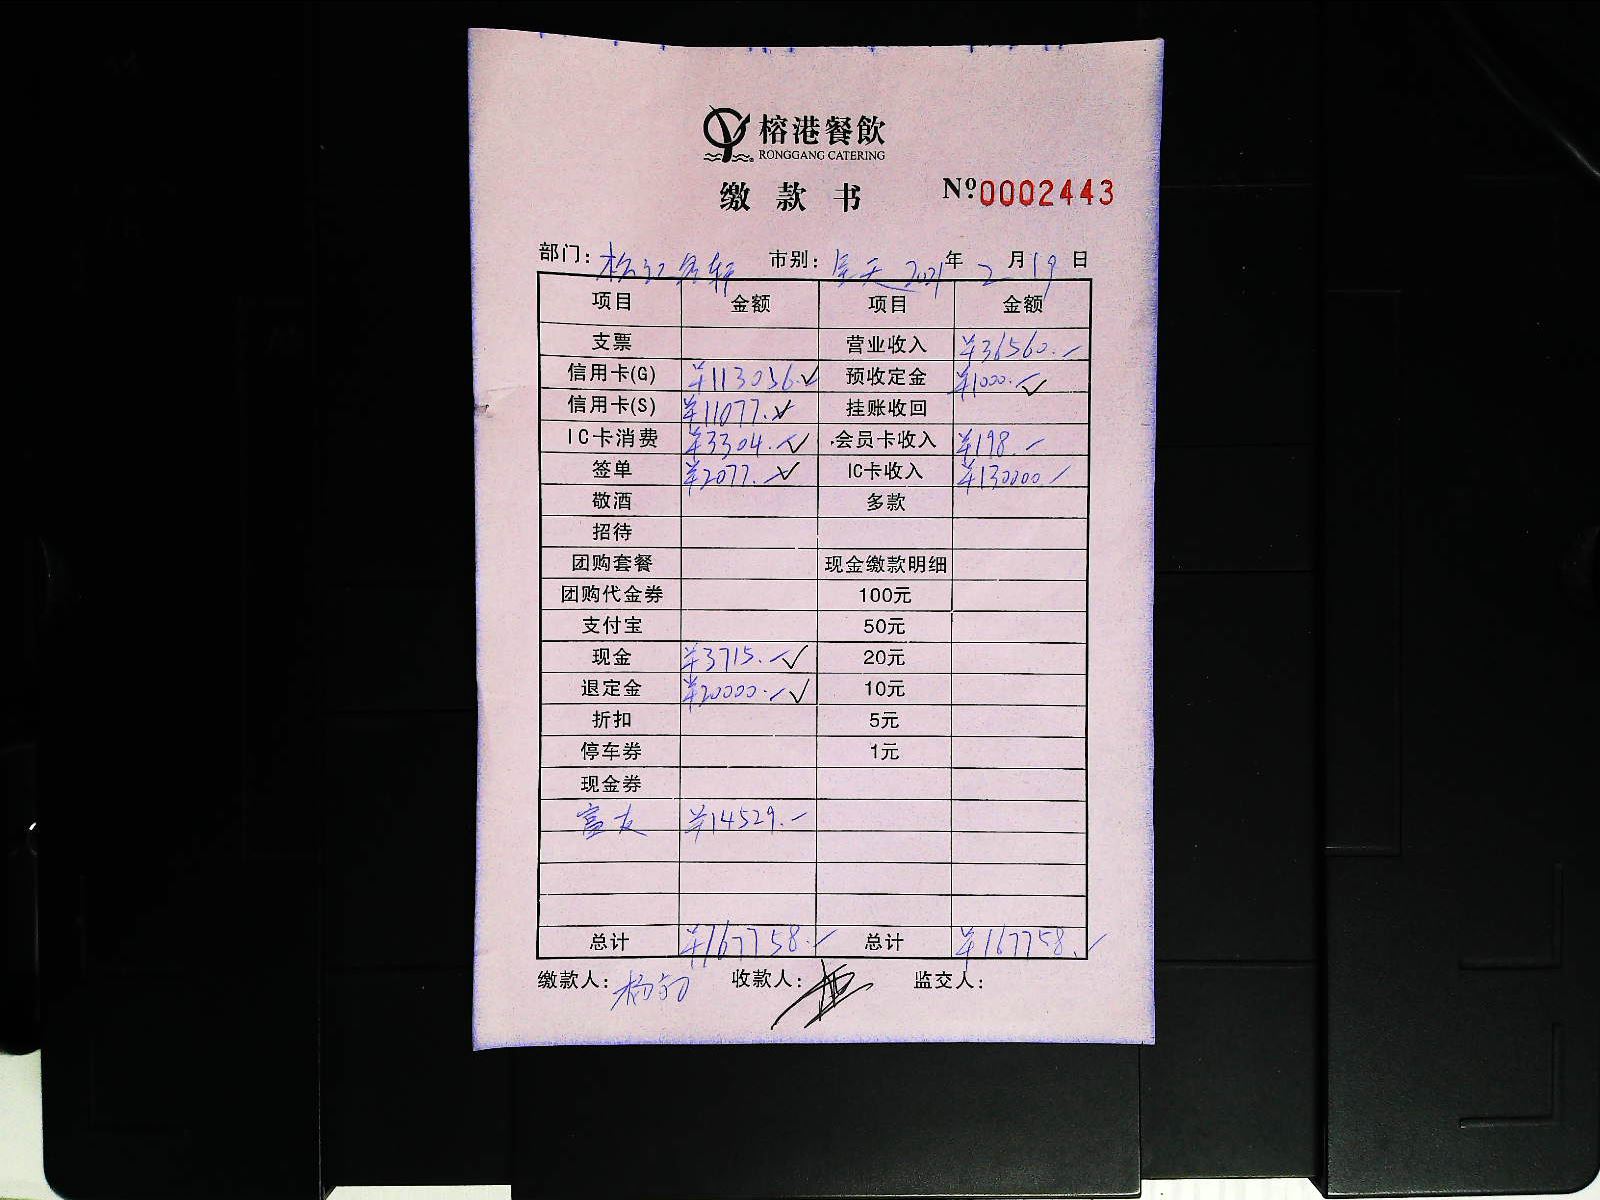 榕港餐飲
RONGGANG CATERING
缴款书 Nº 0002443
部门: 市别: 全天 2021年 2月19日
项目 金额 项目 金额
支票 营业收入 ¥36560.-
信用卡(G) ¥113056.✓ 预收定金 ¥1000.-✓
信用卡(S) ¥11077.✓ 挂账收回
IC卡消费 ¥3304.-✓ 会员卡收入 ¥198.-
签单 ¥2077.-✓ IC卡收入 ¥130000.-
敬酒 多款
招待
团购套餐 现金缴款明细
团购代金券 100元
支付宝 50元
现金 ¥3715.-✓ 20元
退定金 ¥20000.-✓ 10元
折扣 5元
停车券 1元
现金券
富友 ¥14529.-
总计 ¥167758.- 总计 ¥167758.-
缴款人: 杨 收款人: 监交人: